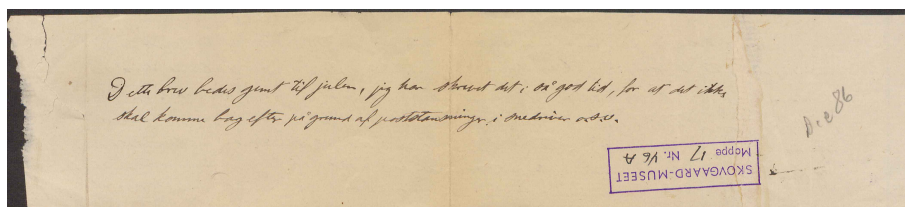 Dette brev bedes gemt til julen, jeg har skrevet det i så god tid, for at det ikke
skal komme bag efter på grund af poststandsninger i snedriver o.s.v.
D. c 86
SKOVGAARD-MUSEET
Mappe 17 Nr. 46 A